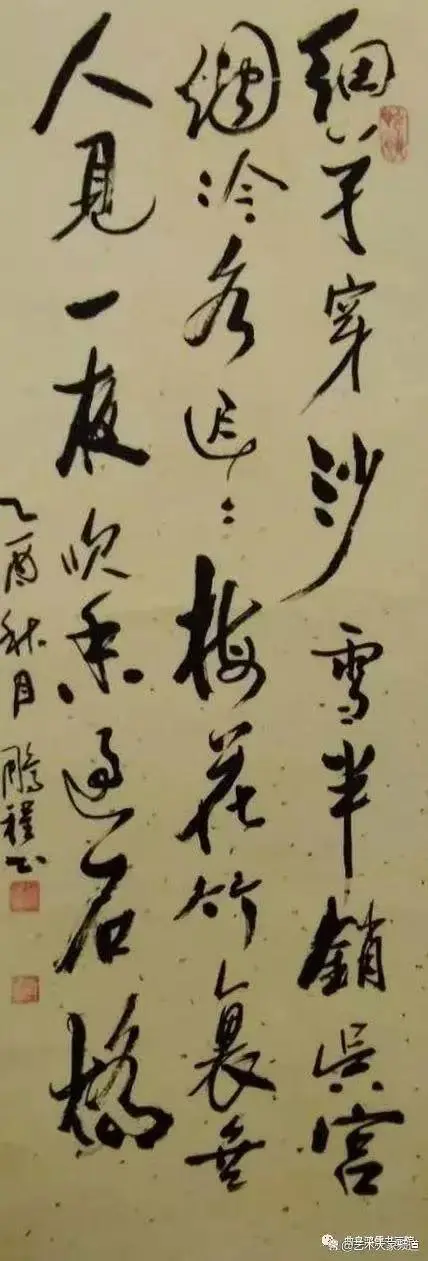 細草穿沙雪半銷吳宮
烟冷水迢〻梅花竹裏無
人見一夜吹香過石橋
乙酉秋月 鵬程书
@艺术大家频道